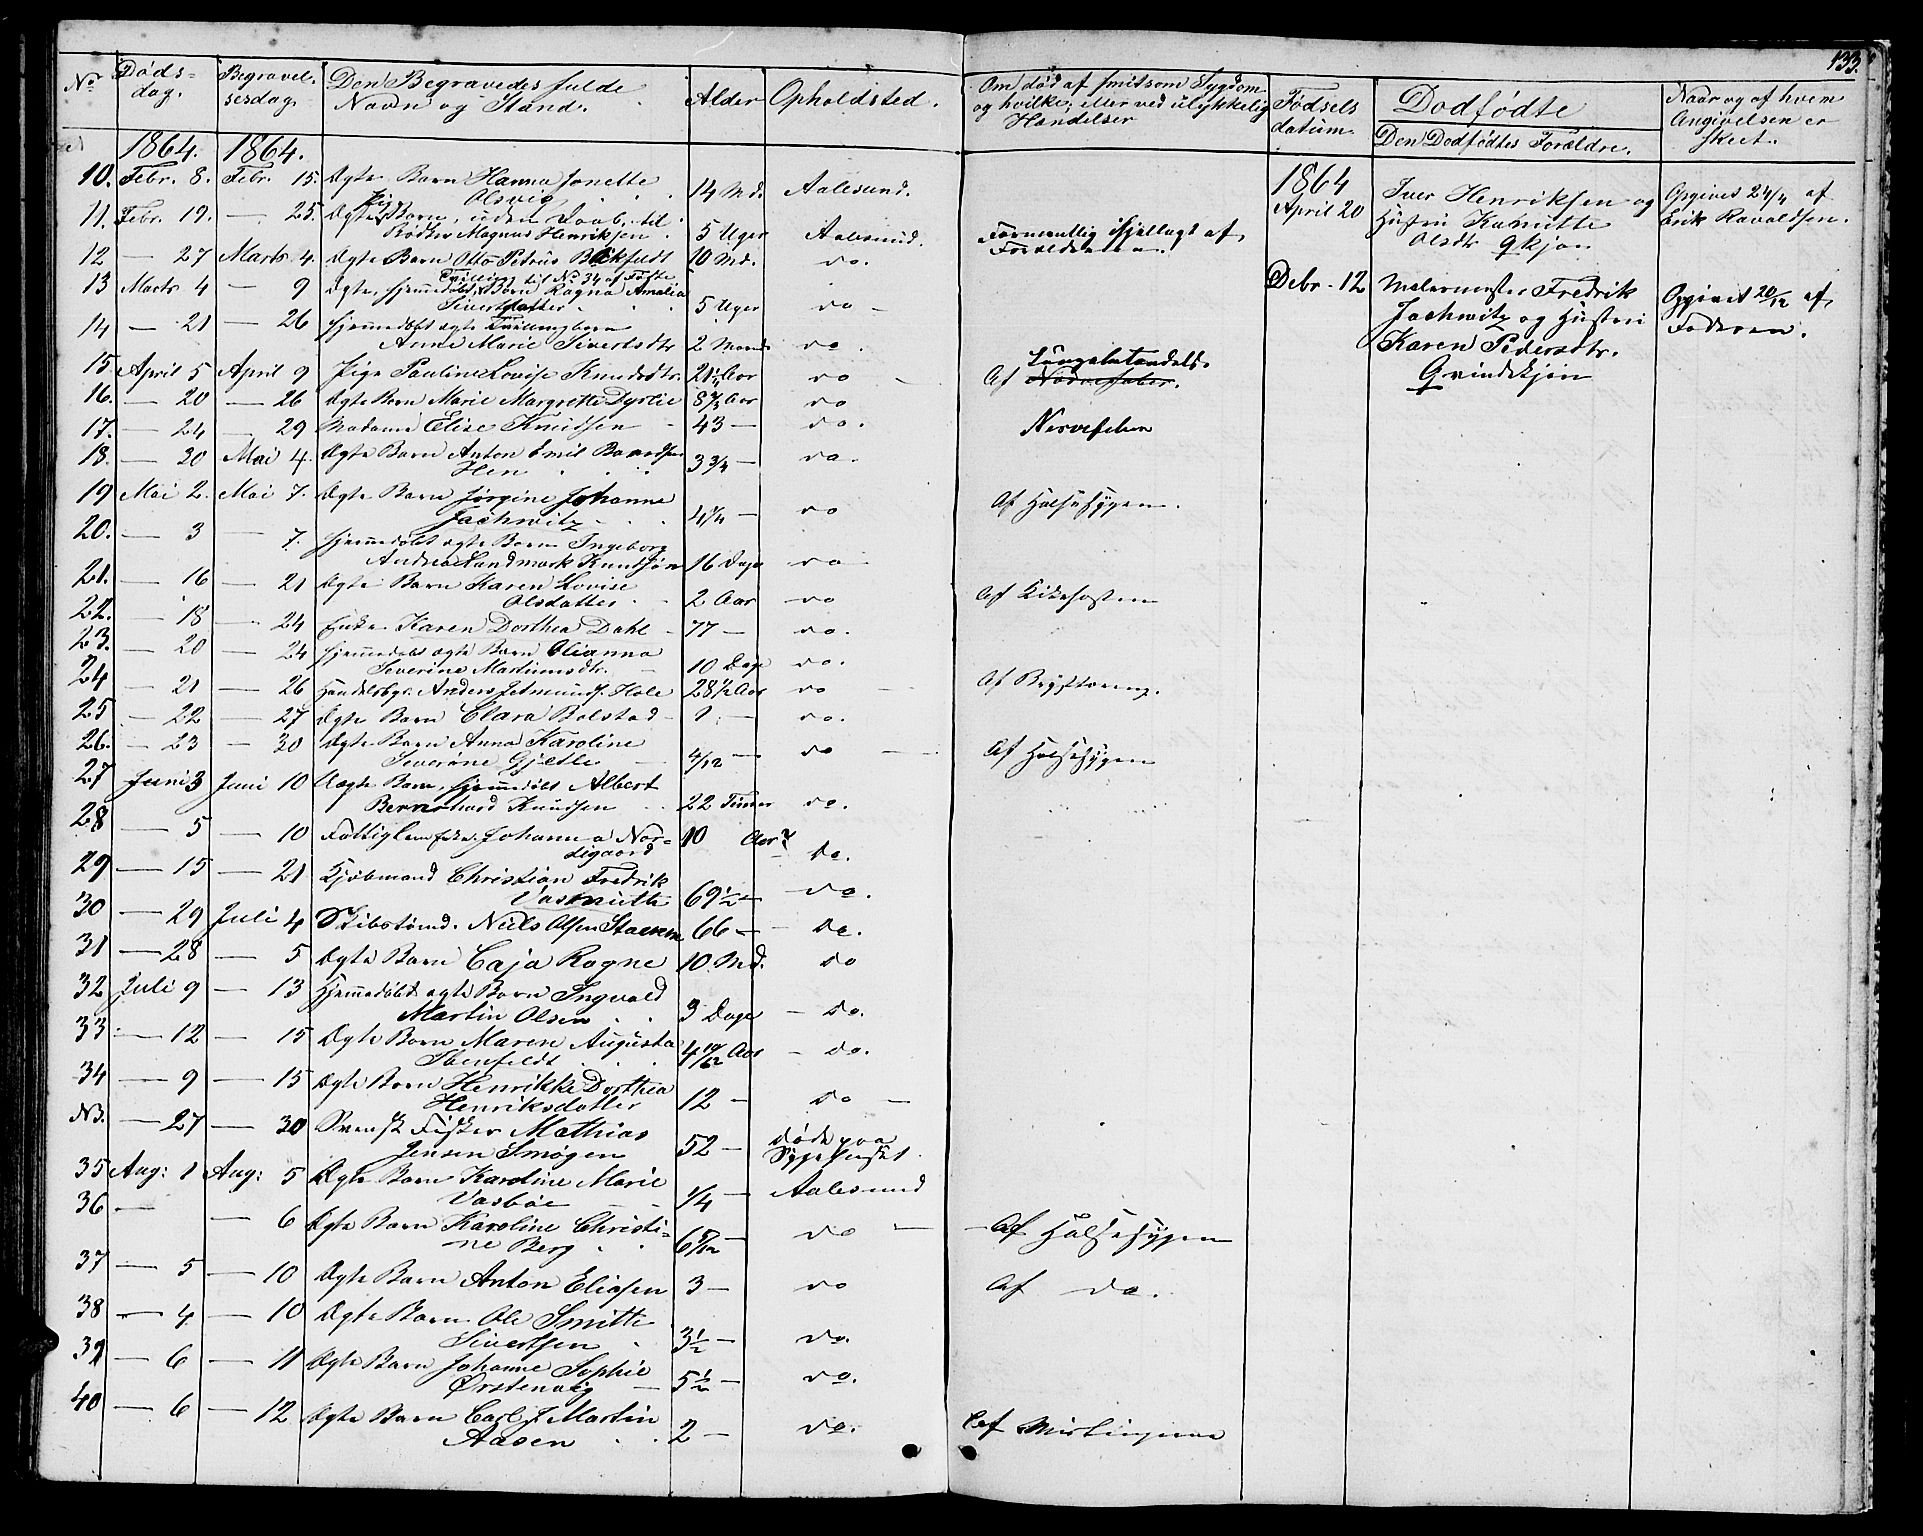 133.
No Døds- Begravel- Den Begravedes fulde Alder Opholdsted.
dag. sesdag. Navn og Stand.
Om død af smitsom Sygdom
og hvilke; eller ved ulykkelig
Hændelser
Fødsels
datum.
Dødfødte
Den Dødfødtes Forældre.
Naar og af hvem
Angivelsen er
skeet.
1864. 1864.
10. Febr. 8. Febr. 15. Ægte Barn Hanna Jonette
Olsvig 14 Md. Aalesund.
11. Febr. 19. — 25. Ægte Barn, uden Daab, til
Bødker Magnus Henriksen 5 Uger Aalesund. Formentlig ihjellagt af
Forældrene.
12 — 27 Marts 4. Ægte Barn Otto Petrus 10 Md. do.
13 Marts 4 — 9 Tvilling til No 34 af Fødte
Ægte, hjemmedøbt Barn Ragna Amalia
Sivertsdatter 5 Uger do —
14 — 21 — 26 hjemmedøbt ægte Tvillingbarn
Anne Marie Sivertsdtr 2 Maand do.
15. April 5 April 9 Pige Pauline Lovise Knudsdtr. 21 Aar do — Af Nervefeber. Lungebetændelse
16. — 20 — 26 Ægte Barn Marie Margrethe Dyslie 8 Aar do
17. — 24 — 29 Madame Elise Knudsen 43 — do. Nervefeber
18. — 30 Mai 4. Ægte Barn Anton Emil Baardsen
Hen 3 3/4 — do.
19 Mai 2. Mai 7. Ægte Barn Jørgine Johanne
Jachwitz 4 1/4 — do Af Halsesygen.
20. — 3 — 7. hjemmedøbt ægte Barn Ingeborg
Andrea Landmark Knudsøn 16 Dage do —
21. — 16 — 21 Ægte Barn Karen Lovise
Olsdatter 2 Aar — do Af Kikehosten
22. — 18 — 24 Enke Karen Dorthea Dahl — 77 — do.
23. — 20 — 24 hjemmedøbt ægte Barn Olianna
Severine Martinusdtr. 10 Dage do.
24 — 21 — 26 Handelsbgr. Anders Jetmunds. Hole 28 1/2 Aar do — Af Brystsvag.
25 — 22 — 27 Ægte Barn Clara Bolstad — 1 — do.
26. — 23 — 30 Ægte Barn Anna Karoline
Severine Gjette 4/12 — do — Af Halsesygen
27 Juni 3 Juni 10 Ægte Barn, hjemmedøbt Albert
Bernhard Knudsen 22 Timer do.
28 — 5 — 10 Fattiglem Enke Johanna Nor-
digaard 10 Aar? do.
29 — 15 — 21 Kjøbmand Christian Fredrik
Vasmuth 69 1/2 — do.
30 — 29 Juli 4 Skibstømd. Niels Olsen Stavem 66 — do.
31 — 28 — 5 Ægte Barn Caja Rogne 10 Md. do
32 Juli 9 — 13 Hjemmedøbt ægte Barn Ingvald
Martin Olsen 3 Dage — do.
33 — 12 — 15 Ægte Barn Maren Augusta
Ibenfeldt 4 10/12 Aar — do.
34 — 9 — 15 Ægte Barn Henrikke Dorthea
Henriksdatter 12 — do —
NB. — 27 — 30 Svensk Fisker Mathias
Jensen Smøgen 52 — døde paa
Sygehuset.
35 Aug: 1 Aug: 5 Ægte Barn Karoline Marie
Vasbøe 1/4 — Aalesund
36 — — 6 Ægte Barn Karoline Christi-
ne Berg 6 — do — Af Halsesygen
37 — 5 — 10 Ægte Barn Anton Eliasen 3 — do Af do.
38 — 4 — 10 Ægte Barn Ole Smitte
Sivertsen 3 1/2 — do.
39 — 6 — 11 Ægte Barn Johanne Sophie
Ørstenvig 5 1/2 — do.
40 — 6 — 12 Ægte Barn Carl J Martin
Aasen 2 — do. Af Meslingerne
1864
April 20 Iver Henriksen og
Hustru
Olsdtr Opgivet 24/4 af
Erik Ravaldsen.
Debr. 12 Malermester Fredrik
Jachwitz og Hustru
Karen Pedersdtr.
Opgivet 20/12 af
Faderen.